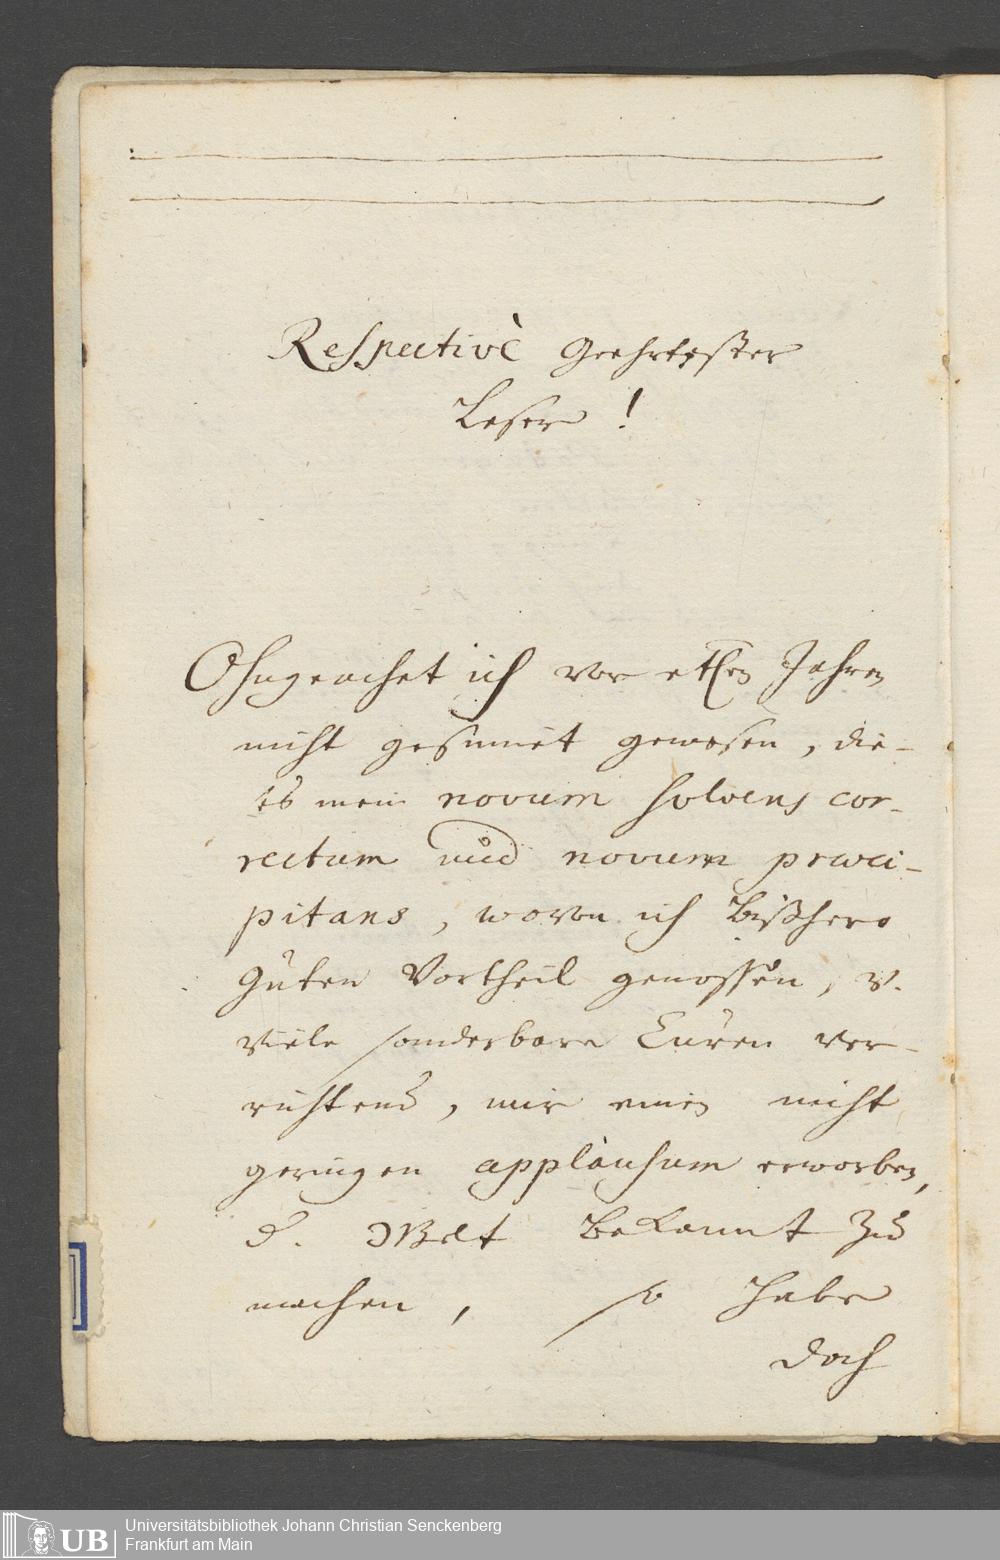 Respectivè Geehrtester
Leser !
Ohngeachet ich vor etlen Jahren
nicht gesinnet gewesen, die-
ses mein novum solvens cor-
rectum und novum præci-
pitans, wovon ich bißhero
guten Vortheil genossen, v.
viele sonderbare Curen ver-
richtend, mir einen nicht
geringen applausum erworben,
d. Welt bekannt zu
machen, so habe
doch
UB Universitätsbibliothek Johann Christian Senckenberg
Frankfurt am Main